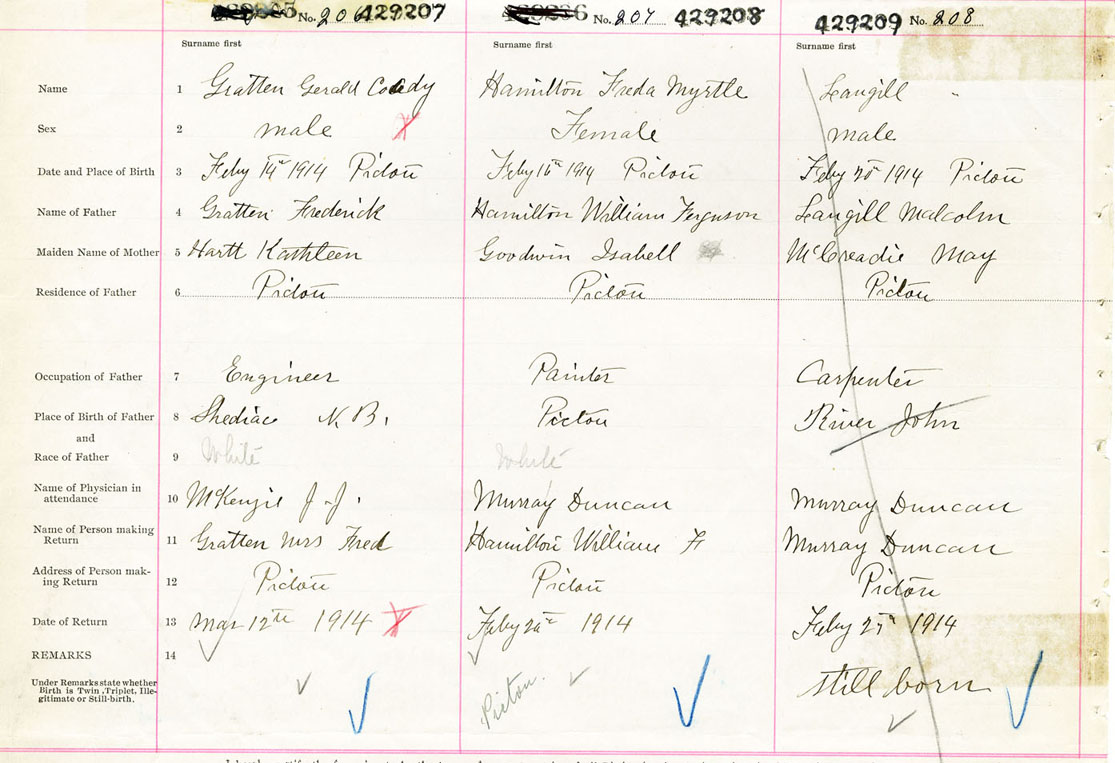 No. 206 429207 No. 207 429208 429209 No. 208
Surname first Surname first Surname first
Name 1 Gratten Gerald Coady Hamilton Freda Myrtle Langill "
Sex 2 male X Female male
Date and Place of Birth 3 Feby 14th 1914 Pictou Feby 16th 1914 Pictou Feby 20th 1914 Pictou
Name of Father 4 Gratten Frederick Hamilton William Ferguson Langill Malcolm
Maiden Name of Mother 5 Hartt Kathleen Goodwin Isabell McCreadie May
Residence of Father 6 Pictou Pictou Pictou
Occupation of Father 7 Engineer Painter Carpenter
Place of Birth of Father 8 Shediac N.B. Pictou River John
and
Race of Father 9 White White
Name of Physician in
attendance 10 McKenzie J.J. Murray Duncan Murray Duncan
Name of Person making
Return 11 Gratten Mrs Fred Hamilton William F Murray Duncan
Address of Person mak-
ing Return 12 Pictou Pictou Pictou
Date of Return 13 Mar 12th 1914 X Feby 1914 Feby 1914
REMARKS 14
Under Remarks state whether
Birth is Twin, Triplet, Ille-
gitimate or Still-birth.
Pictou.
still born